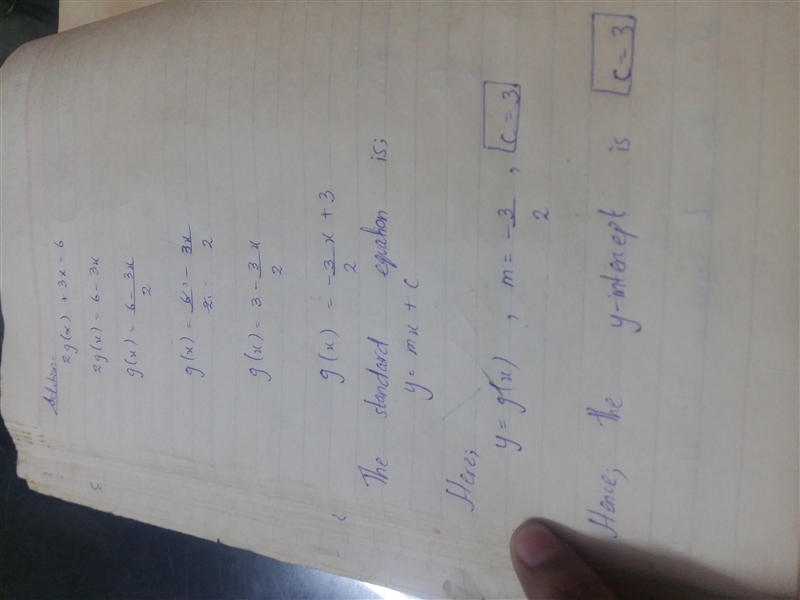 Solution:
2g(x) + 3x = 6
2g(x) = 6 - 3x
g(x) = 6 - 3x / 2
g(x) = 6 / 2 - 3x / 2
g(x) = 3 - 3x / 2
g(x) = -3/2 x + 3
The standard equation is;
y = mx + c
Here;
y = g(x) , m = -3/2 , c = 3
Hence; the y-intercept is c = 3